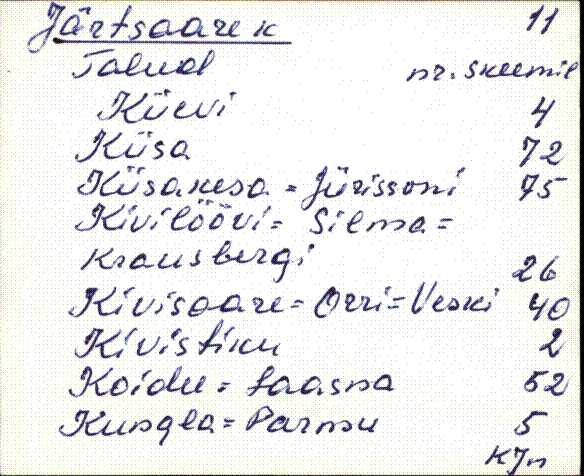 Järtsaare k 11
Talud nr. skeemil
Küevi 4
Küsa 72
Küsakesa = Jürissoni 75
Kivilöövi = Silma =
Krausbergi 26
Kivisaare = Orri = Veski 40
Kivistiku 2
Koidu = Laasna 52
Kungla = Parmu 5